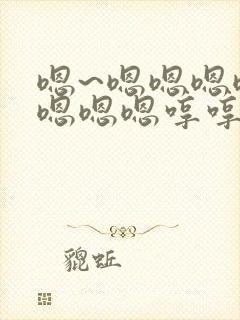 嗯~嗯嗯嗯
嗯嗯嗯哼哼
貔蚯